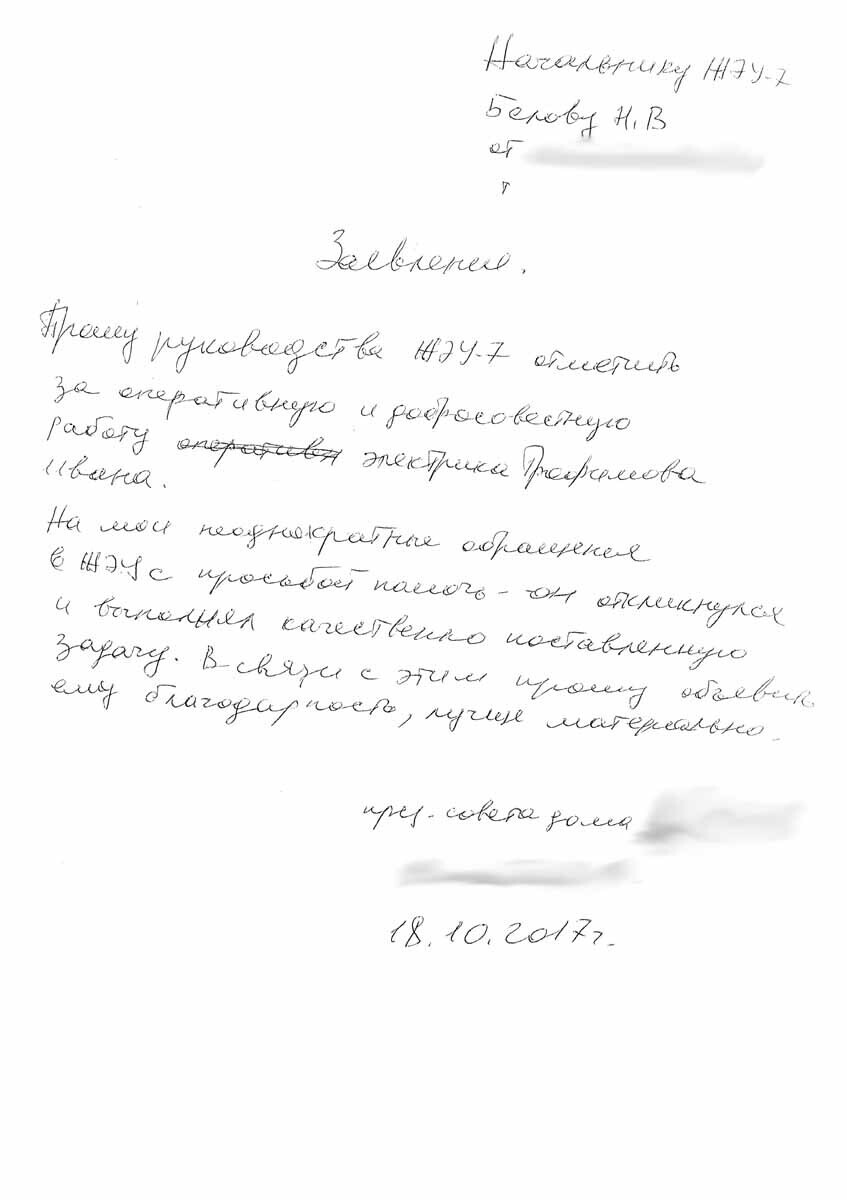 Начальнику ЖЭУ-7
Белову Н.В
от
Заявление.
Прошу руководства ЖЭУ-7 отметить
за оперативную и добросовестную
работу оператив электрика Трофимова
Ивана.
На мои неоднократные обращения
в ЖЭУ с просьбой помочь - он откликнулся
и выполнял качественно поставленную
задачу. В связи с этим прошу объявить
ему благодарность, лучше материально.
пред. совета дома
18.10.2017г.